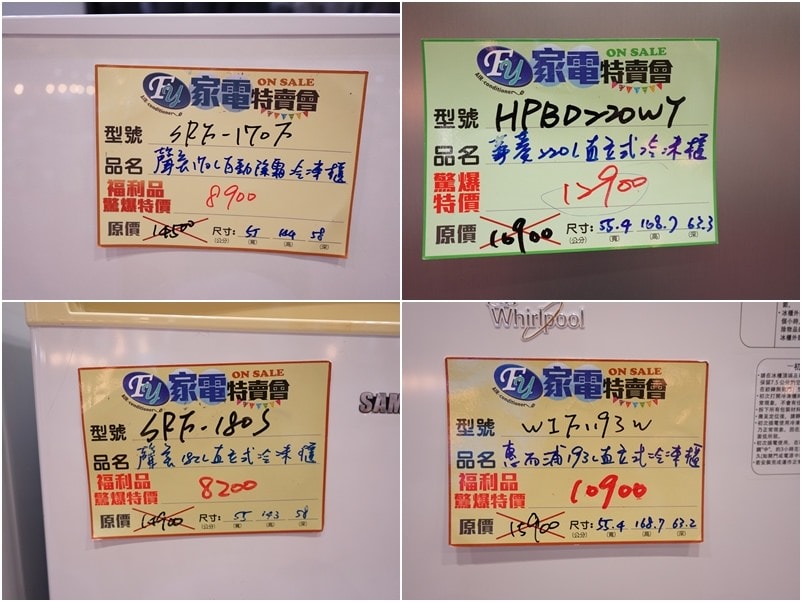 FY 家電特賣會 ON SALE
Air-conditioner
型號 SRF-170F
品名 聲寶170L自動除霜冷凍櫃
福利品
驚爆特價 8900
原價 14500 尺寸: 55 144 58
(公分) (寬) (高) (深)
FY 家電特賣會 ON SALE
Air-conditioner
型號 HPBD220WY
品名 華菱220L直立式冷凍櫃
驚爆
特價 12900
原價 16900 尺寸: 55.4 168.7 63.3
(公分) (寬) (高) (深)
SAM
FY 家電特賣會 ON SALE
Air-conditioner
型號 SRF-180S
品名 聲寶182L直立式冷凍櫃
福利品
驚爆特價 8200
原價 14900 尺寸: 55 143 58
(公分) (寬) (高) (深)
Whirlpool
FY 家電特賣會 ON SALE
Air-conditioner
型號 WIF1193W
品名 惠而浦193L直立式冷凍櫃
福利品
驚爆特價 10900
原價 15900 尺寸: 55.4 168.7 63.2
(公分) (寬) (高) (深)